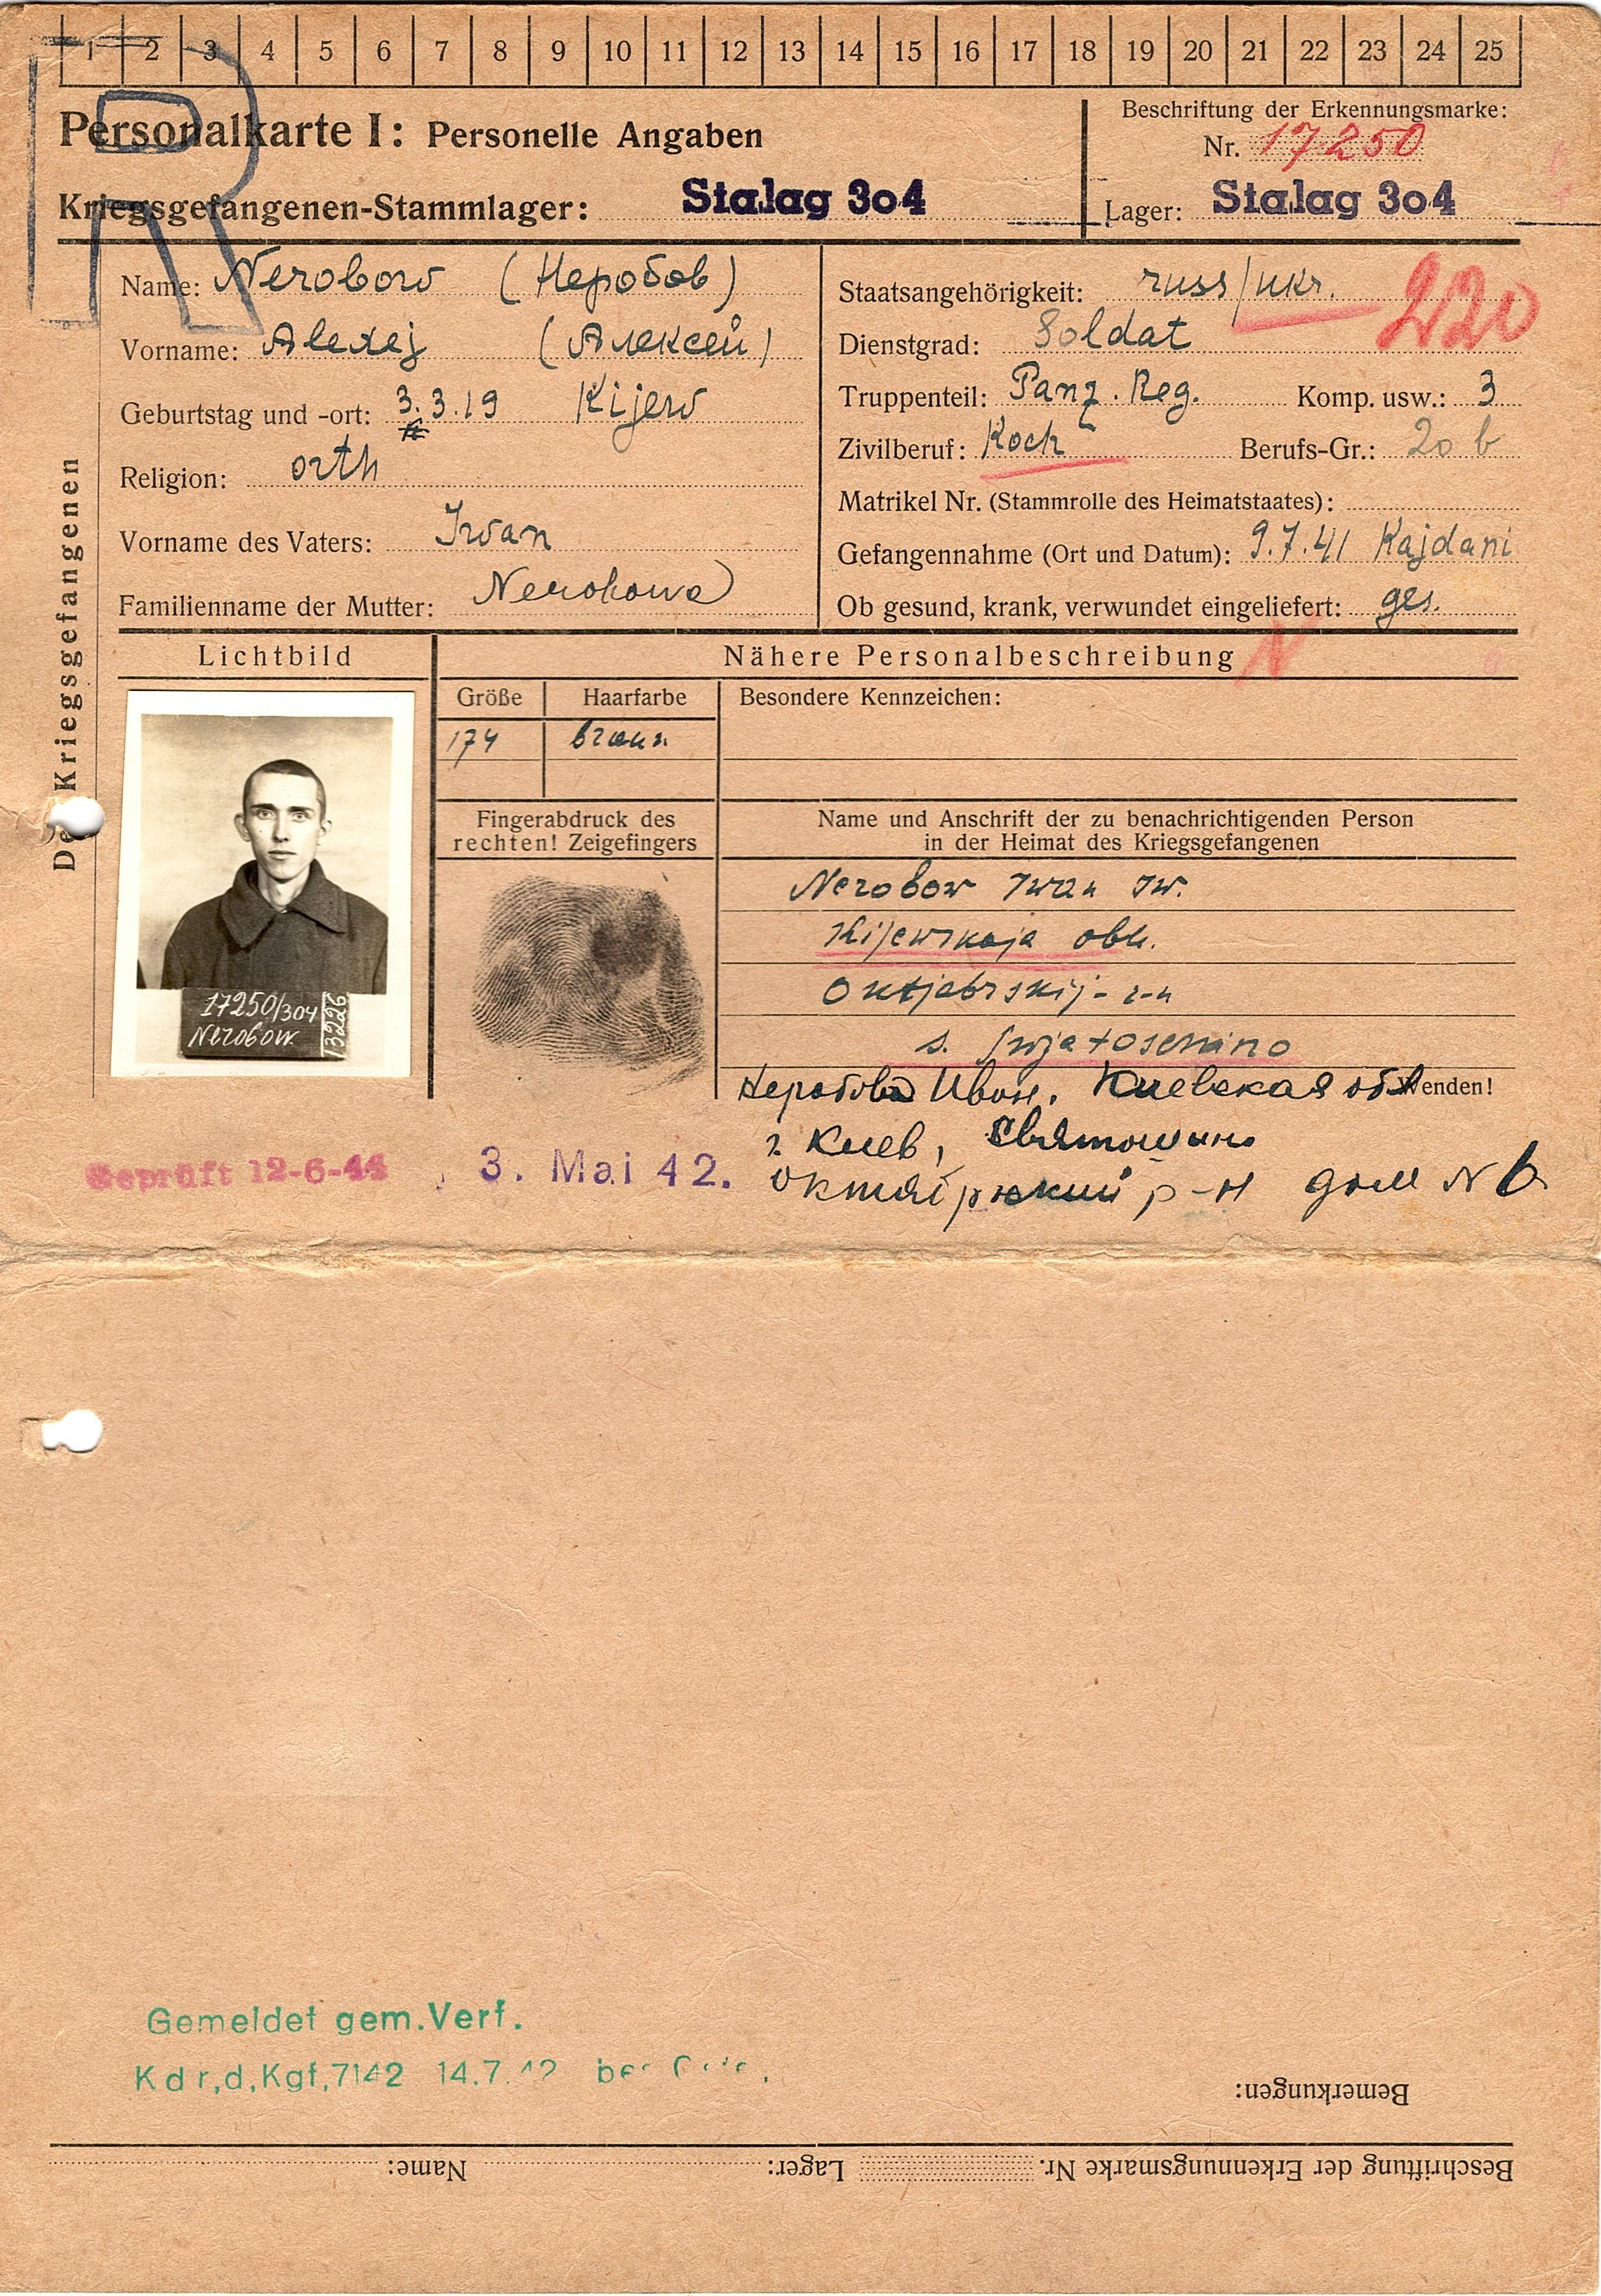 1 2 3 4 5 6 7 8 9 10 11 12 13 14 15 16 17 18 19 20 21 22 23 24 25
R
Personalkarte I: Personelle Angaben
Kriegsgefangenen-Stammlager: Stalag 304
Beschriftung der Erkennungsmarke:
Nr. 17250
Lager: Stalag 304
Des Kriegsgefangenen
Name: Nerobow (Неробов)
Vorname: Alexej (Алексей)
Geburtstag und -ort: 3.3.19 Kijew
Religion: orth
Vorname des Vaters: Iwan
Familienname der Mutter: Nerobowa
Staatsangehörigkeit: russ/ukr.
220
Dienstgrad: Soldat
Truppenteil: Panz. Reg. Komp. usw.: 3
Zivilberuf: Koch Berufs-Gr.: 20 b
Matrikel Nr. (Stammrolle des Heimatstaates):
Gefangennahme (Ort und Datum): 9.7.41 Kajdani
Ob gesund, krank, verwundet eingeliefert: ges.
Lichtbild
17250/304
Nerobow
13226
Nähere Personalbeschreibung
N
Größe Haarfarbe
174 braun
Besondere Kennzeichen:
Fingerabdruck des
rechten! Zeigefingers
Name und Anschrift der zu benachrichtigenden Person
in der Heimat des Kriegsgefangenen
Nerobow Iwan Iw.
Kijewskaja obl.
Oktjabrskij-r-n
s. Swjatoschino
Wenden!
Неробов Иван. Киевская обл
г. Киев, Святошино
Октябрьский р-н дом N 6
Geprüft 12-6-44
3. Mai 42.
Gemeldet gem.Verf.
Kdr,d,Kgf,7142 14.7.42
Bemerkungen:
Beschriftung der Erkennungsmarke Nr. Lager: Name: